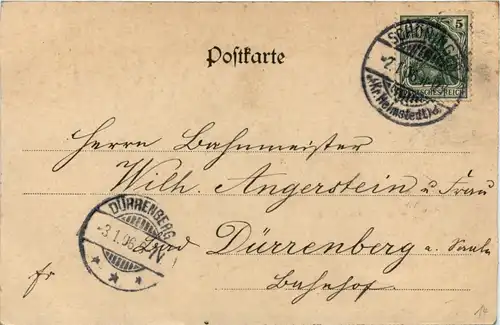 Postkarte
5
SCHÖNINGEN
-2.1.06
(Kr. Helmstedt)
DEUTSCHES REICH
Herrn Bahnmeister
Wilh. Angerstein u. Frau
DÜRRENBERG
-3.1.06
Bad Dürrenberg a. Saale
fr
Bahnhof.